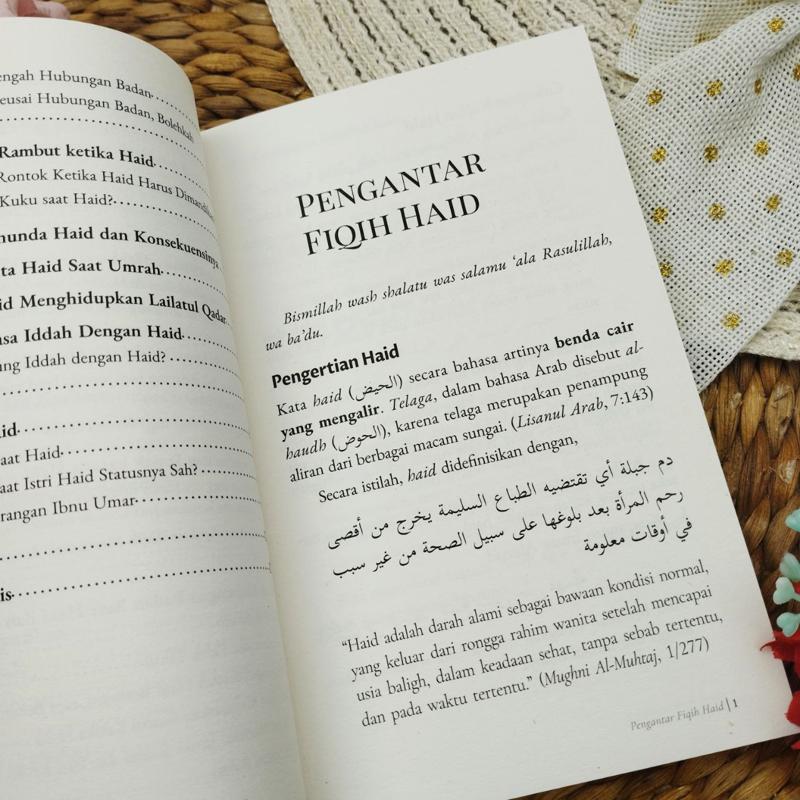 engah Hubungan Badan
eusai Hubungan Badan, Bolehkah
Rambut ketika Haid
Rontok Ketika Haid Harus
Kuku saat Haid?
unda Haid dan Konsekuensinya
ta Haid Saat Umrah
id Menghidupkan Lailatul Qadar
asa Iddah Dengan Haid
ung Iddah dengan Haid?
id
aat Haid
aat Istri Haid Statusnya Sah?
arangan Ibnu Umar
is
PENGANTAR
FIQIH HAID
Bismillah wash shalatu was salamu ‘ala Rasulillah,
wa ba’du.
Pengertian Haid
Kata haid (الحيض) secara bahasa artinya benda cair
yang mengalir. Telaga, dalam bahasa Arab disebut al-
haudh (الحوض), karena telaga merupakan penampung
aliran dari berbagai macam sungai. (Lisanul Arab, 7:143)
Secara istilah, haid didefinisikan dengan,
دم جبلة أي تقتضيه الطباع السليمة يخرج من أقصى
رحم المرأة بعد بلوغها على سبيل الصحة من غير سبب
في أوقات معلومة
“Haid adalah darah alami sebagai bawaan kondisi normal,
yang keluar dari rongga rahim wanita setelah mencapai
usia baligh, dalam keadaan sehat, tanpa sebab tertentu,
dan pada waktu tertentu.” (Mughni Al-Muhtaj, 1/277)
Pengantar Fiqih Haid | 1